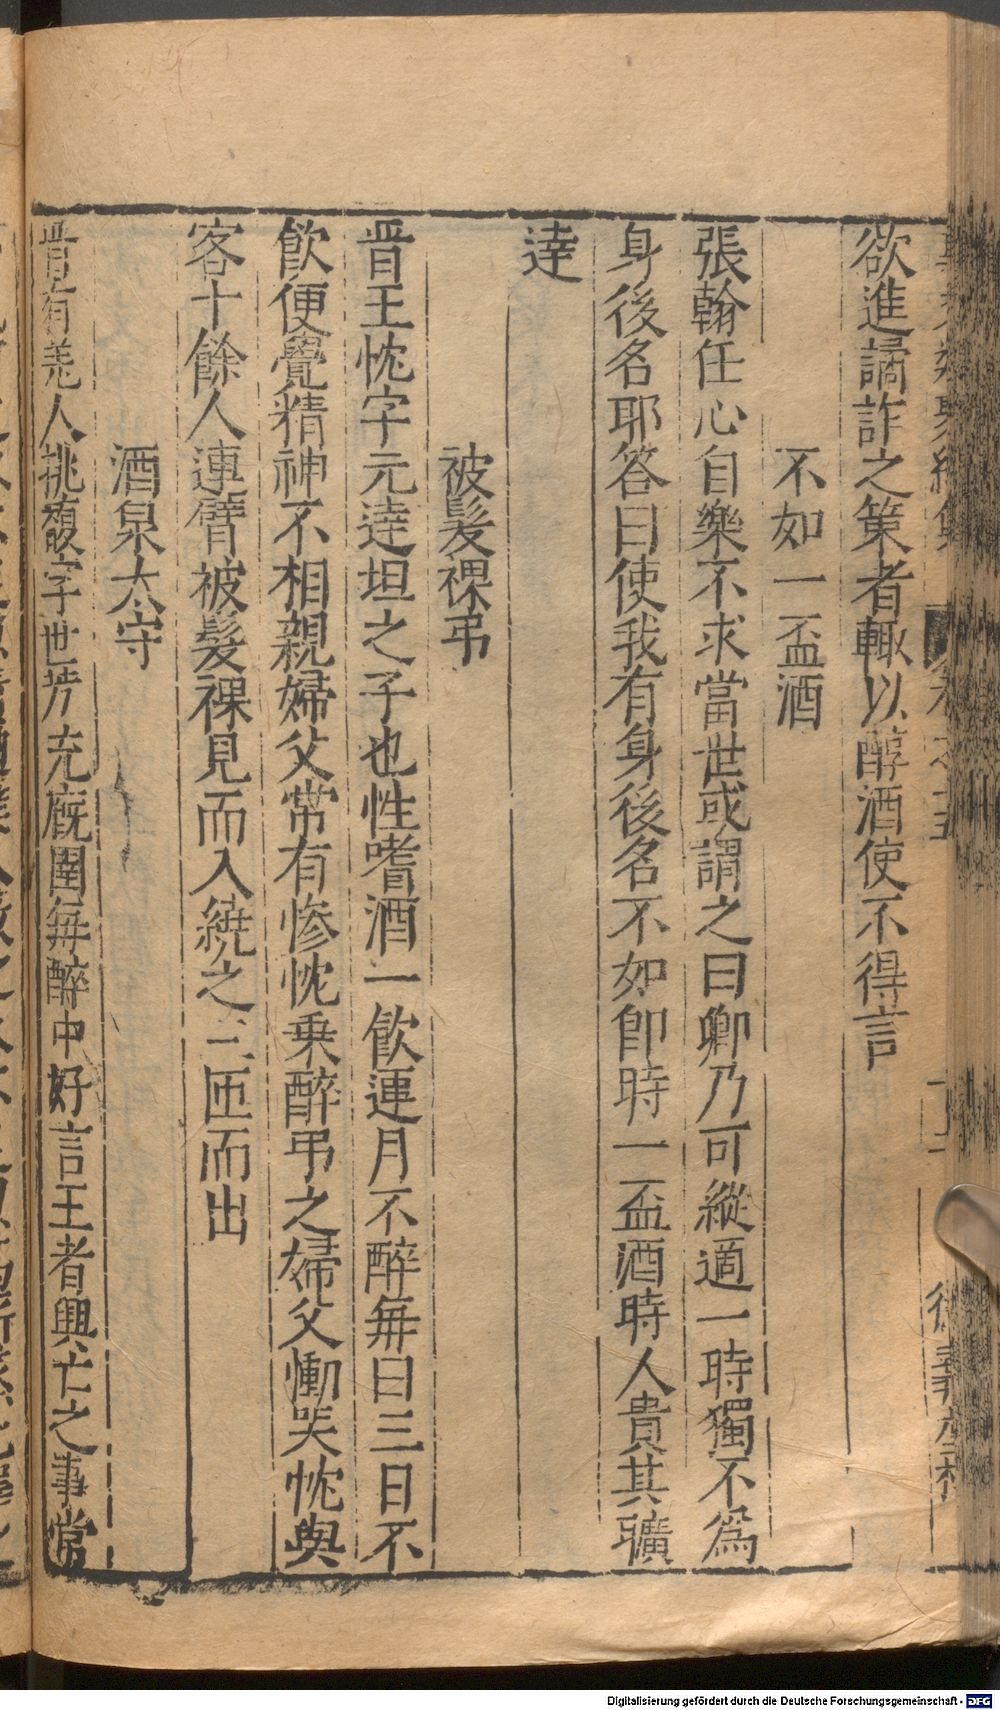 欲進譎詐之策者輙以醇酒使不得言
不如一盃酒
張翰任心自樂不求當世或謂之曰卿乃可縱適一時獨不爲
身後名耶答曰使我有身後名不如卽時一盃酒時人貴其曠
達
被髮裸弔
晋王忱字元達坦之子也性嗜酒一飲連月不醉每曰三日不
飲便覺精神不相親婦父常有慘忱乗醉弔之婦父慟哭忱與
客十餘人連臂被髮裸見而入繞之三匝而出
酒泉太守
晋有羌人挑馥字世芳充廐圉每醉中好言王者興亡之事常
Digitalisierung gefördert durch die Deutsche Forschungsgemeinschaft - DFG